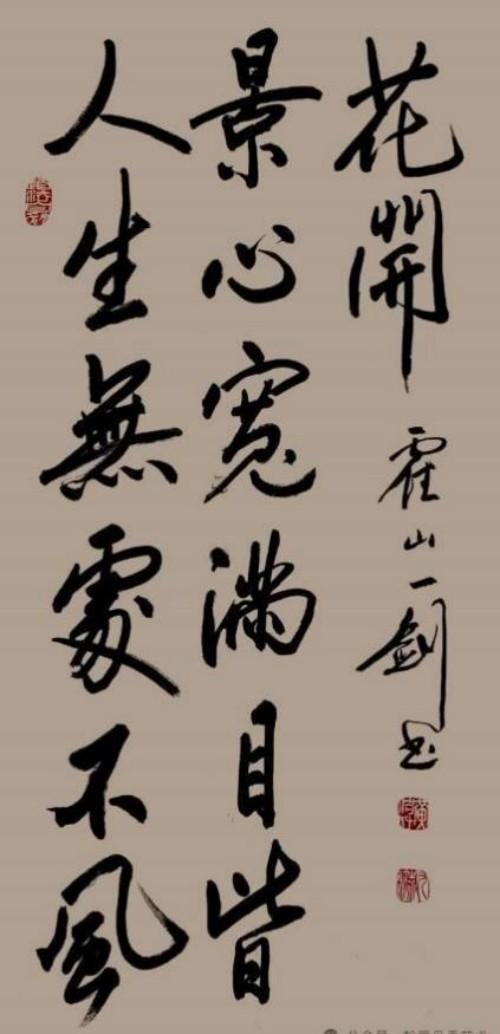 人生無處不風
景心寬滿目皆
花開
霍山一劍书